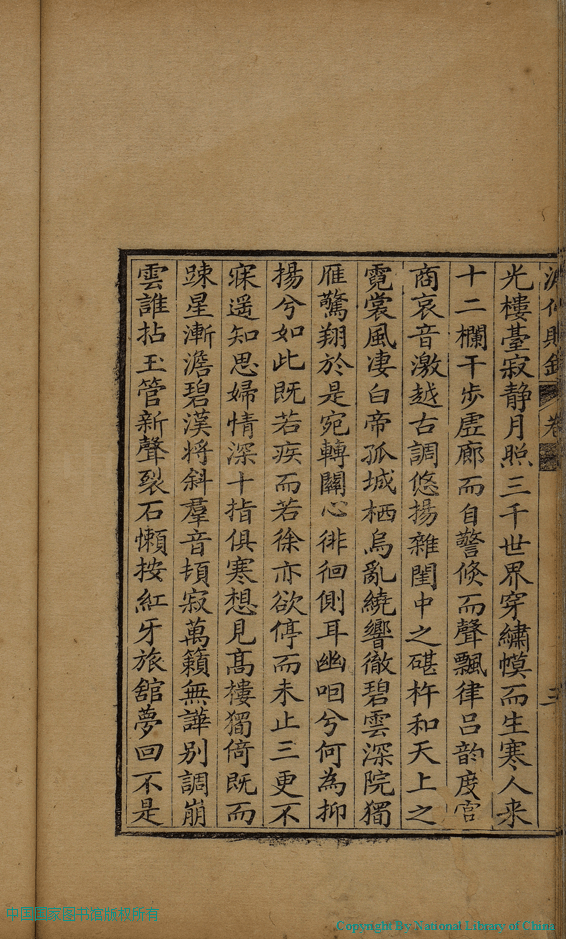 光樓臺寂静月照三千世界穿繡幙而生寒人来
十二欄干步虚廊而自警倐而聲飄律吕韵度宫
商哀音激越古調悠揚雜閨中之碪杵和天上之
霓裳風凄白帝孤城栖烏亂繞響徹碧雲深院獨
雁驚翔於是宛轉關心徘徊側耳幽咽兮何為抑
揚兮如此既若疾而若徐亦欲停而未止三更不
寐遥知思婦情深十指俱寒想見髙樓獨倚既而
踈星漸澹碧漢将斜羣音頓寂萬籟無譁别調崩
雲誰拈玉管新聲裂石懶按紅牙旅舘夢回不是
中国国家图书馆版权所有
Copyright by National Library of China